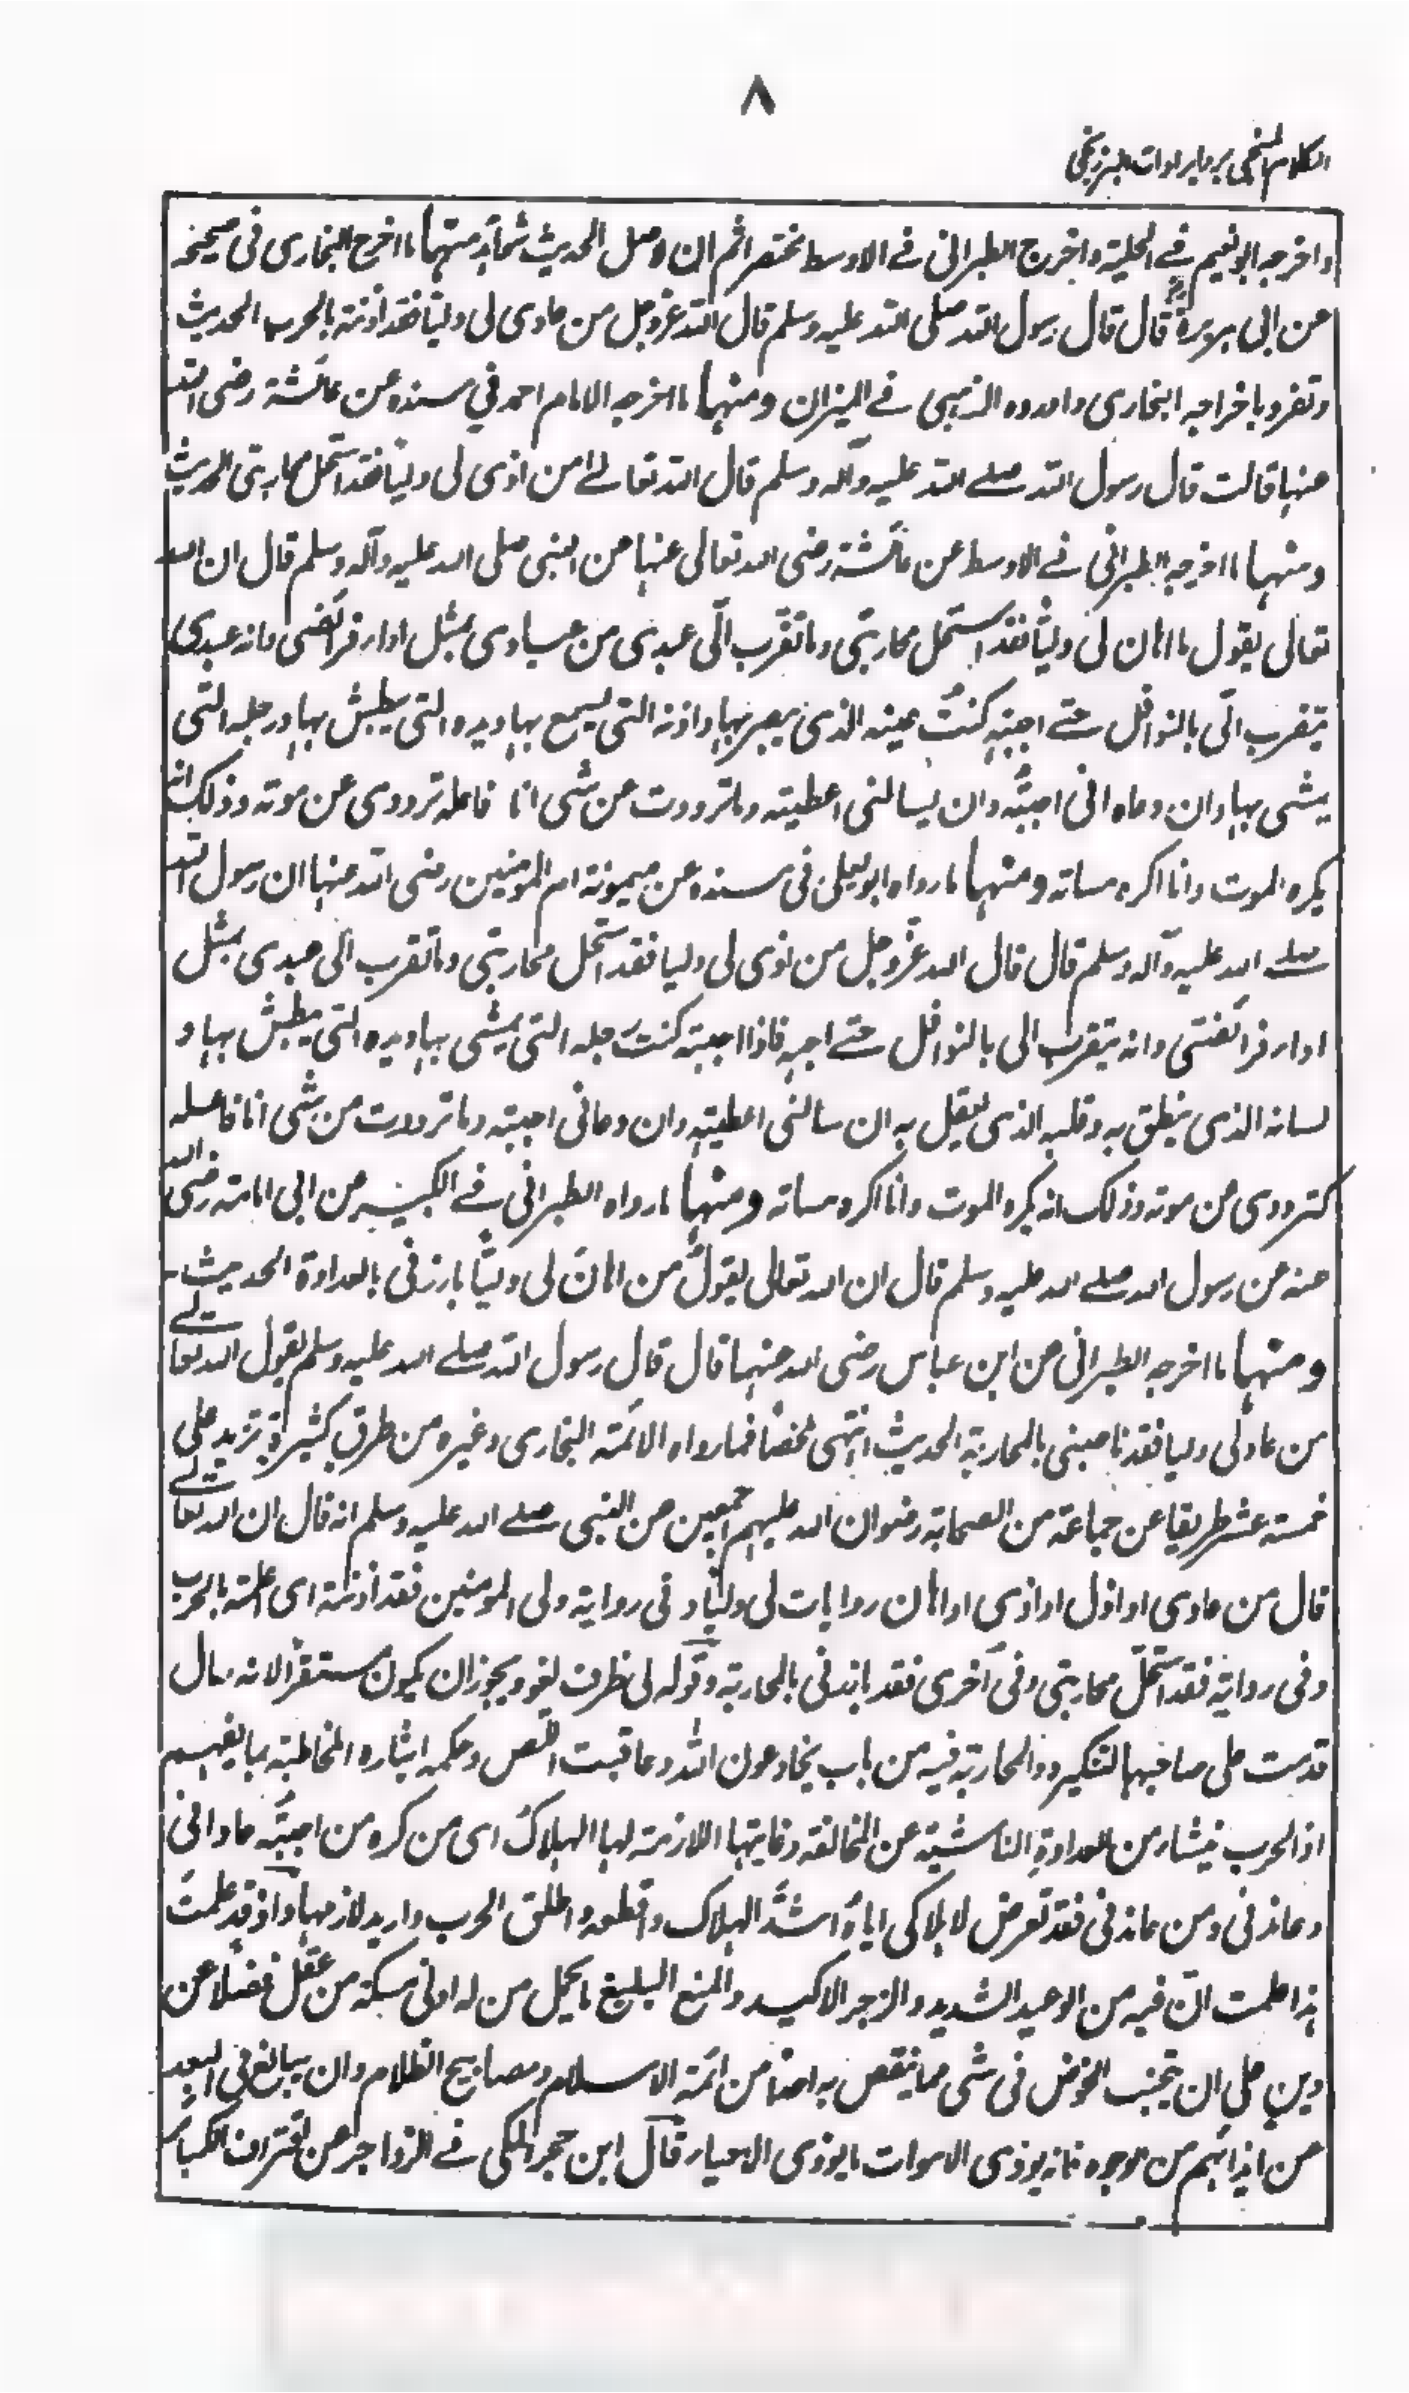 ٨
الكلام المنجي برد ايرادات البرزنجي
واخرجه ابو نعيم في الحلية واخرج الطبراني في الاوسط مختصرا ثم ان لاصل الحديث شواهد منها ما اخرج البخاري في صحيحه
عن ابي هريرة قال قال رسول الله صلى الله عليه وسلم قال الله عز وجل من عادى لي وليا فقد آذنته بالحرب الحديث
وتفرد باخراجه البخاري واورده الذهبي في الميزان ومنها ما اخرجه الامام احمد في مسنده عن عائشة رضى الله
عنها قالت قال رسول الله صلے الله عليه وآله وسلم قال الله تعالے من اذى لي وليا فقد استحل محاربتي الحديث
ومنها ما اخرجه الطبراني في الاوسط عن عائشة رضى الله تعالى عنها عن النبي صلى الله عليه وآله وسلم قال ان الله
تعالى يقول من اهان لي وليا فقد استحل محاربتي وما تقرب الي عبدي من عبادي بمثل اداء فرائضي وانه عبدي
يتقرب الي بالنوافل حتے احبه كنت عينه الذي يبصر بها واذنه التي يسمع بها ويده التي يبطش بها ورجله التي
يمشي بها وان دعاه اني احببته وان يسالني اعطيته وما ترددت عن شي انا فاعله ترددي عن موته وذلك انه
يكره الموت وانا اكره مساته ومنها ما رواه ابو يعلى في مسنده عن ميمونة ام المومنين رضى الله عنها ان رسول الله
صلے الله عليه وآله وسلم قال قال الله عز وجل من اذى لي وليا فقد استحل محاربتي وما تقرب الي عبدي بمثل
اداء فرائضي وانه يتقرب الي بالنوافل حتے احبه فاذا احببته كنت رجله التي يمشي بها ويده التي يبطش بها و
لسانه الذي ينطق به وقلبه الذي يعقل به ان سالني اعطيته وان دعاني اجبته وما ترددت من شي انا فاعله
كترددي من موته وذلك انه يكره الموت وانا اكره مساته ومنها ما رواه الطبراني في الكبير عن ابي امامة رضى الله
عنه عن رسول الله صلے الله عليه وسلم قال ان الله تعالى يقول من اهان لي وليا بارزني بالعداوة الحديث
ومنها ما اخرجه الطبراني عن ابن عباس رضى الله عنهما قال قال رسول الله صلے الله عليه وسلم يقول الله تعالے
من عاد لي وليا فقد ناصبني بالمحاربة الحديث انتهى ملخصا فما رواه الائمة البخاري وغيره من طرق كثيرة تزيد على
خمسة عشر طريقا عن جماعة من الصحابة رضوان الله عليهم اجمعين عن النبي صلے الله عليه وسلم انه قال ان الله تعالے
قال من عادى او اذل او اذى او اهان روايات لي وليا و في رواية ولي المومنين فقد آذنته اى اعلمته بالحرب
وفي رواية فقد استحل محاربتي وفي اخرى فقد بارزني بالمحاربة وقوله لي ظرف لغو ويجوز ان يكون مستقرا لانه حال
قدمت على صاحبها لتنكيره والمحاربة فيه من باب يخادعون الله وعاقبت اللص وحكمه ايثاره المخاطبة بما يفهم
اذ الحرب ينشاء من العداوة الناشية عن المخالفة وغايتها اللازمة لها الهلاك اى من كره من احببته عاداني
وعاندني ومن عاندني فقد تعرض لاهلاكي اياه اشد الهلاك واقطعه واطلق الحرب واريد لازمها واذ قد علمت
هذا علمت ان فيه من الوعيد الشديد والزجر الاكيد والمنع البليغ ما يحمل من له ادنى مسكة من عقل فضلا عن
دين على ان يتجنب الخوض في شي مما ينقص به احدا من ائمة الاسلام ومصابيح الظلام وان يبالغ في البعد
عن ايذائهم من الوجوه فانه يوذى الاموات ما يوذى الاحياء قال ابن حجر المكي في الزواجر عن اقتراف الكبائر